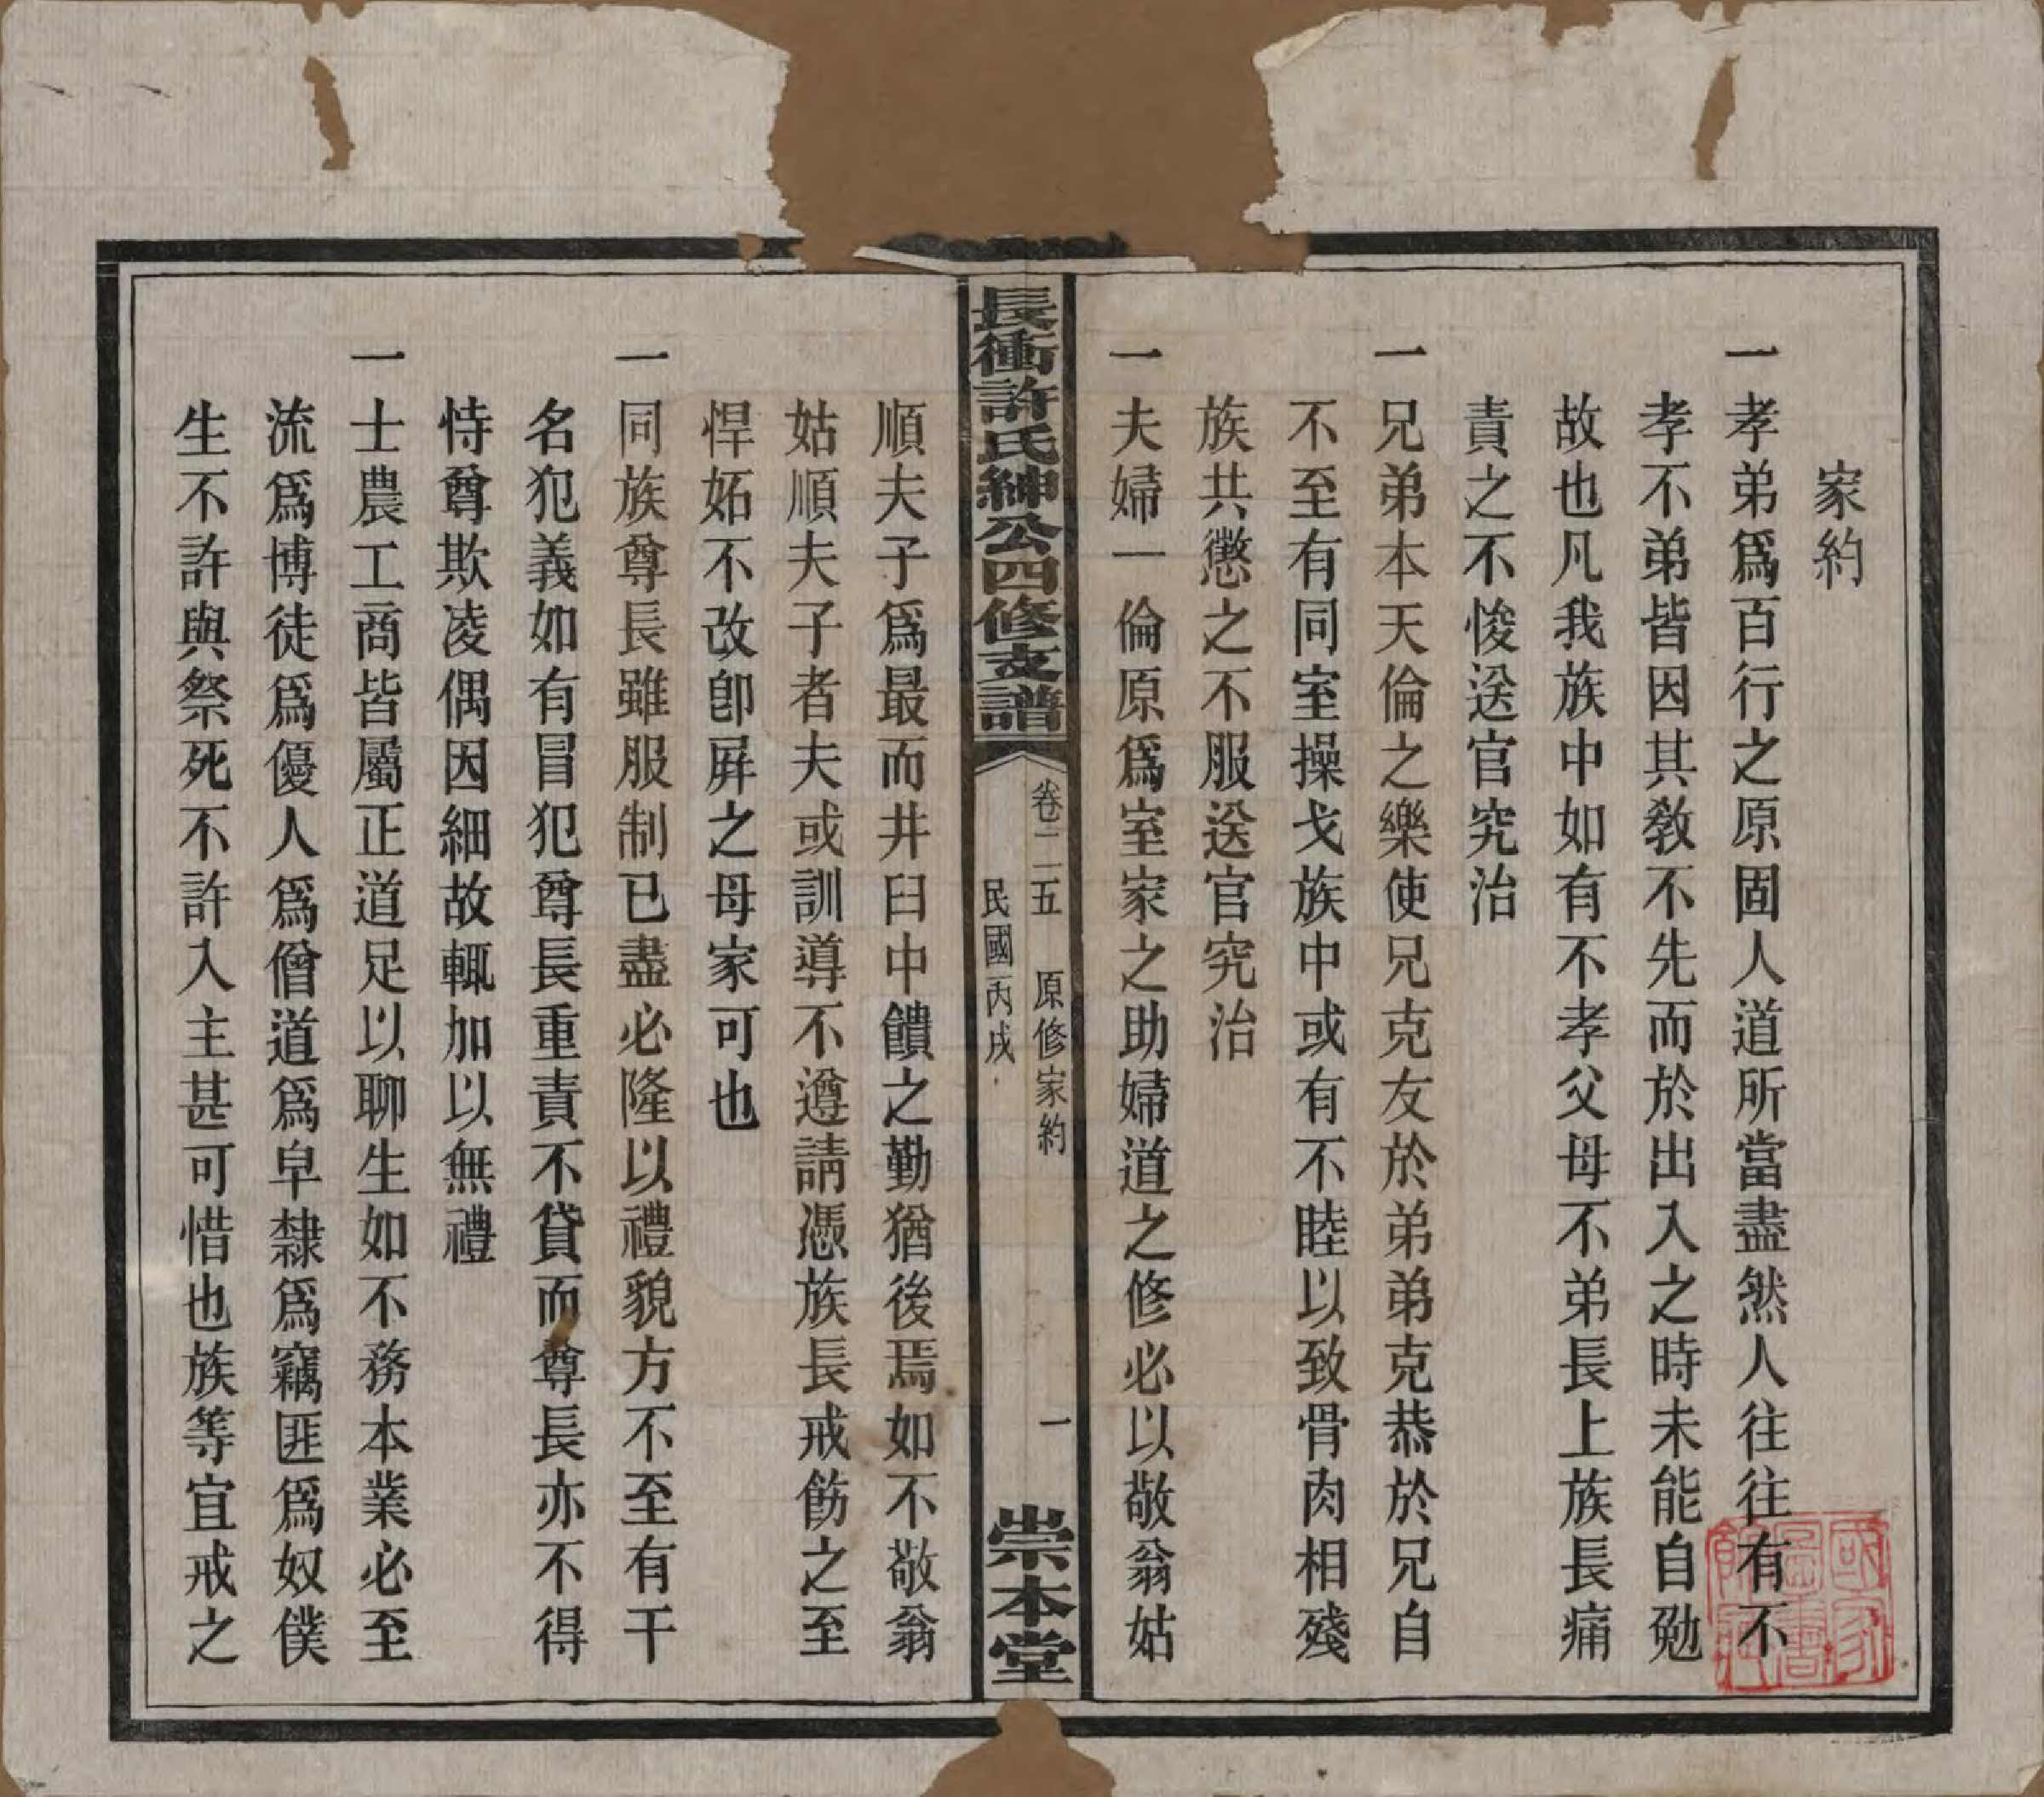 家約
一孝弟爲百行之原固人道所當盡然人往往有不
孝不弟皆因其敎不先而於出入之時未能自勉
故也凡我族中如有不孝父母不弟長上族長痛
責之不悛送官究治
一兄弟本天倫之樂使兄克友於弟弟克恭於兄自
不至有同室操戈族中或有不睦以致骨肉相殘
族共懲之不服送官究治
一夫婦一倫原爲室家之助婦道之修必以敬翁姑
長衝許氏紳公四修支譜
卷二二五 原修家約 一
民國丙戌
崇本堂
順夫子爲最而井臼中饋之勤猶後焉如不敬翁
姑順夫子者夫或訓導不遵請憑族長戒飭之至
悍妬不改卽屛之母家可也
一同族尊長雖服制已盡必隆以禮貌方不至有干
名犯義如有冒犯尊長重責不貸而尊長亦不得
恃尊欺凌偶因細故輒加以無禮
一士農工商皆屬正道足以聊生如不務本業必至
流爲博徒爲優人爲僧道爲皁隸爲竊匪爲奴僕
生不許與祭死不許入主甚可惜也族等宜戒之
國家圖書館藏